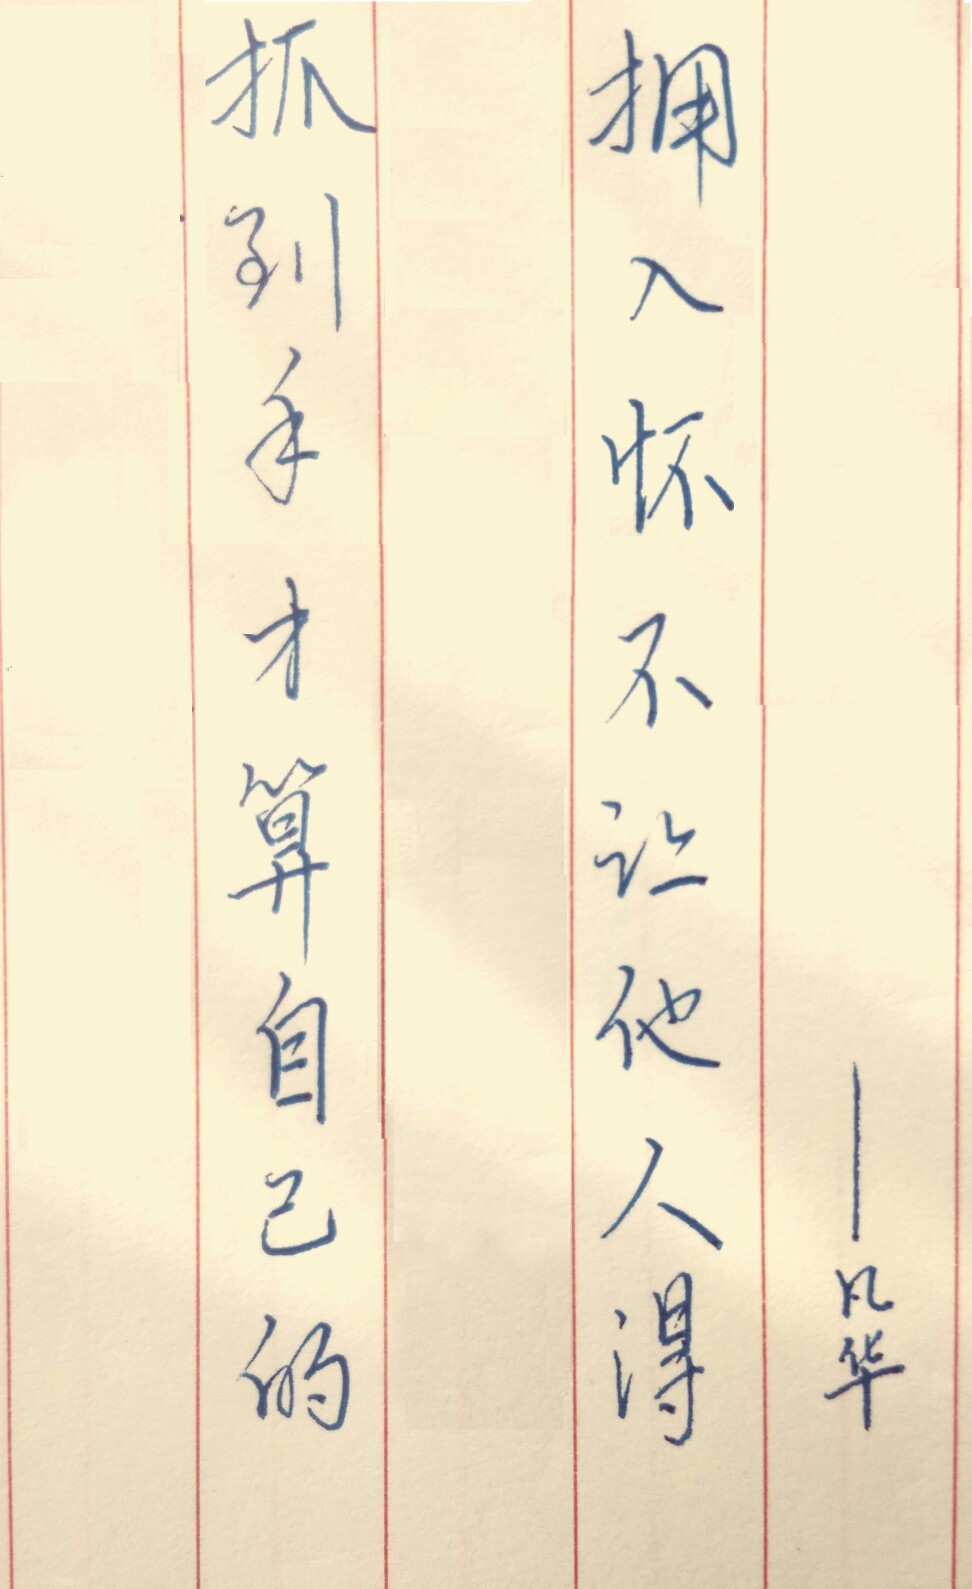 抓到手才算自己的
拥入怀不让他人得
——凡华